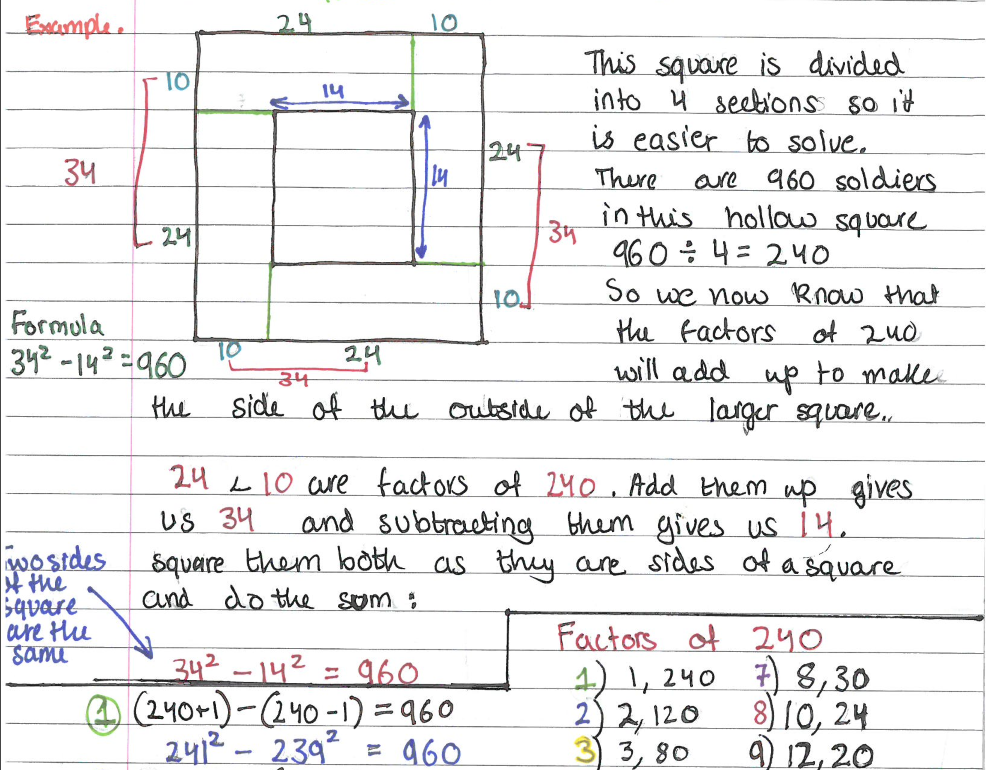 Example.
24 10
10
14
34
14
24
34
24
10
10 24
34
Formula
34² - 14² = 960
This square is divided
into 4 sections so it
is easier to solve.
There are 960 soldiers
in this hollow square
960 ÷ 4 = 240
So we now know that
the factors of 240
will add up to make
the side of the outside of the larger square..
24 & 10 are factors of 240. Add them up gives
us 34 and subtracting them gives us 14.
square them both as they are sides of a square
and do the sum:
Two sides
of the
square
are the
same
34² - 14² = 960
1 (240+1) - (240-1) = 960
241² - 239² = 960
Factors of 240
1) 1, 240 7) 8, 30
2) 2, 120 8) 10, 24
3) 3, 80 9) 12, 20